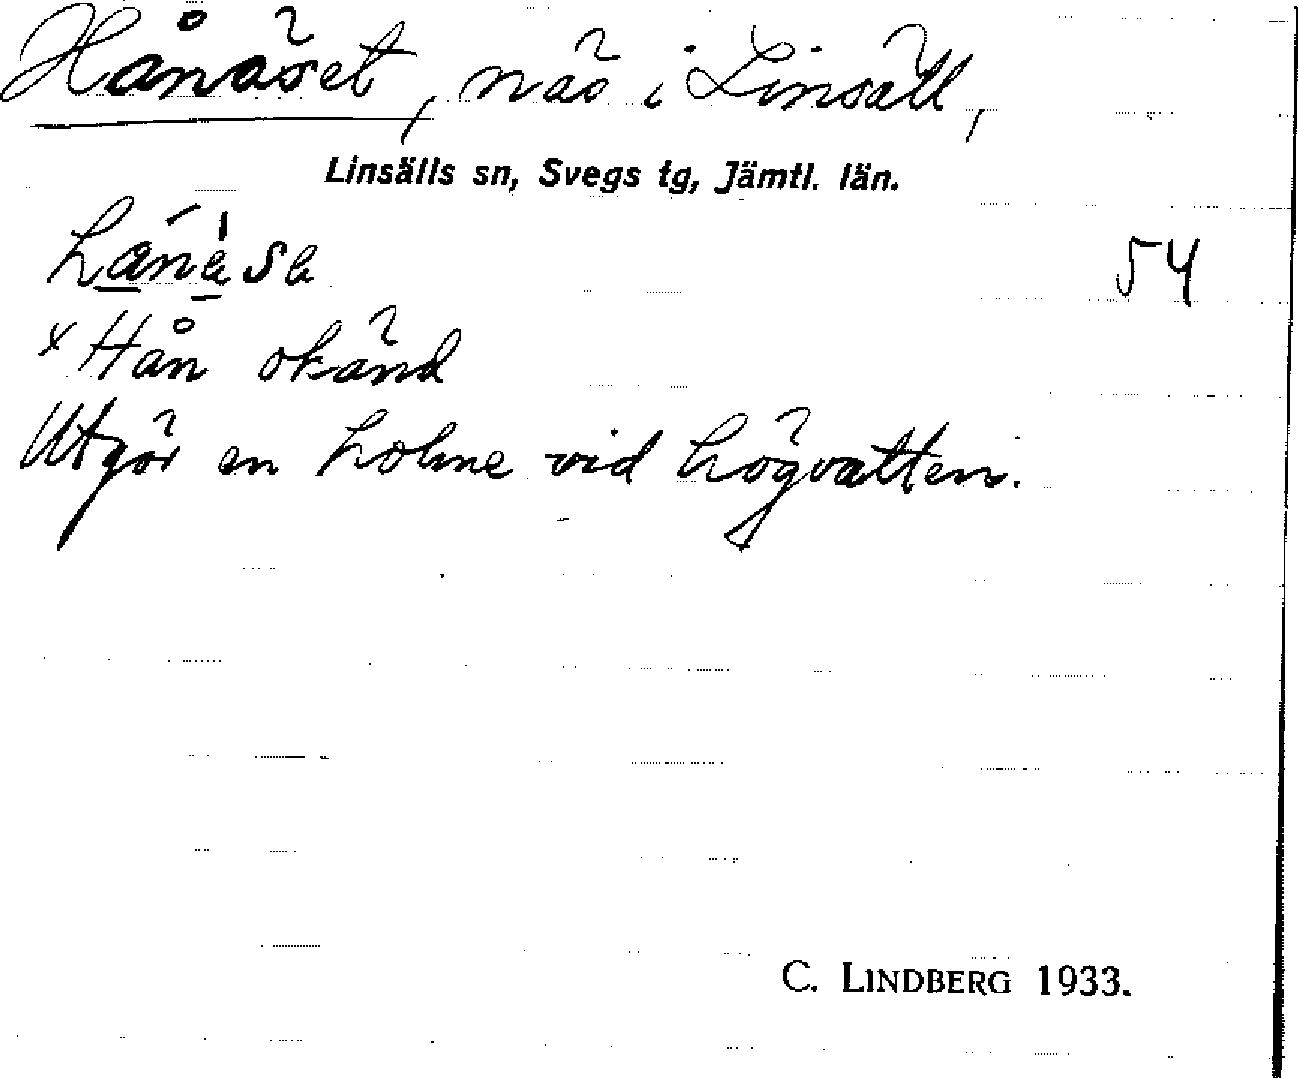 Hånäset, näs i Linsäll,
Linsälls sn, Svegs tg, Jämtl. län.
54
x Hån okänd
Utgör en holme vid högvatten.
C. LINDBERG 1933.